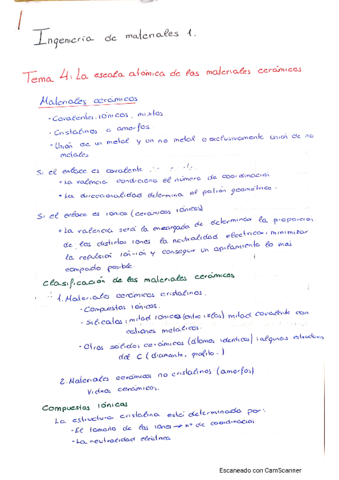 Ingeniería de materiales 1.
Tema 4: La escala atómica de los materiales cerámicos
Materiales cerámicos
· Covalentes, iónicos, mixtos
· Cristalinos o amorfos
· Unión de un metal y un no metal o exclusivamente unión de no
metales.
Si el enlace es covalente
· La valencia condiciona el número de coordinación
· La direccionalidad determina el patrón geométrico.
Si el enlace es iónico (cerámicas iónicas)
· La valencia será la encargada de determinar la proporción
de los distintos iones la neutralidad eléctrica: minimizar
la repulsión iónica y conseguir un apilamiento lo más
compacto posible.
Clasificación de los materiales cerámicos
1. Materiales cerámicos cristalinos.
· Compuestos iónicos.
· Silicatos: mitad iónicos mitad covalente con
cationes metálicos.
· Otros sólidos cerámicos (átomos idénticos): algunas estructuras
del C (diamante, grafito..)
2. Materiales cerámicos no cristalinos (amorfos)
Vidrios cerámicos.
Compuestos iónicos
La estructura cristalina está determinada por:
· El tamaño de los iones → nº de coordinación
· La neutralidad eléctrica
Escaneado con CamScanner